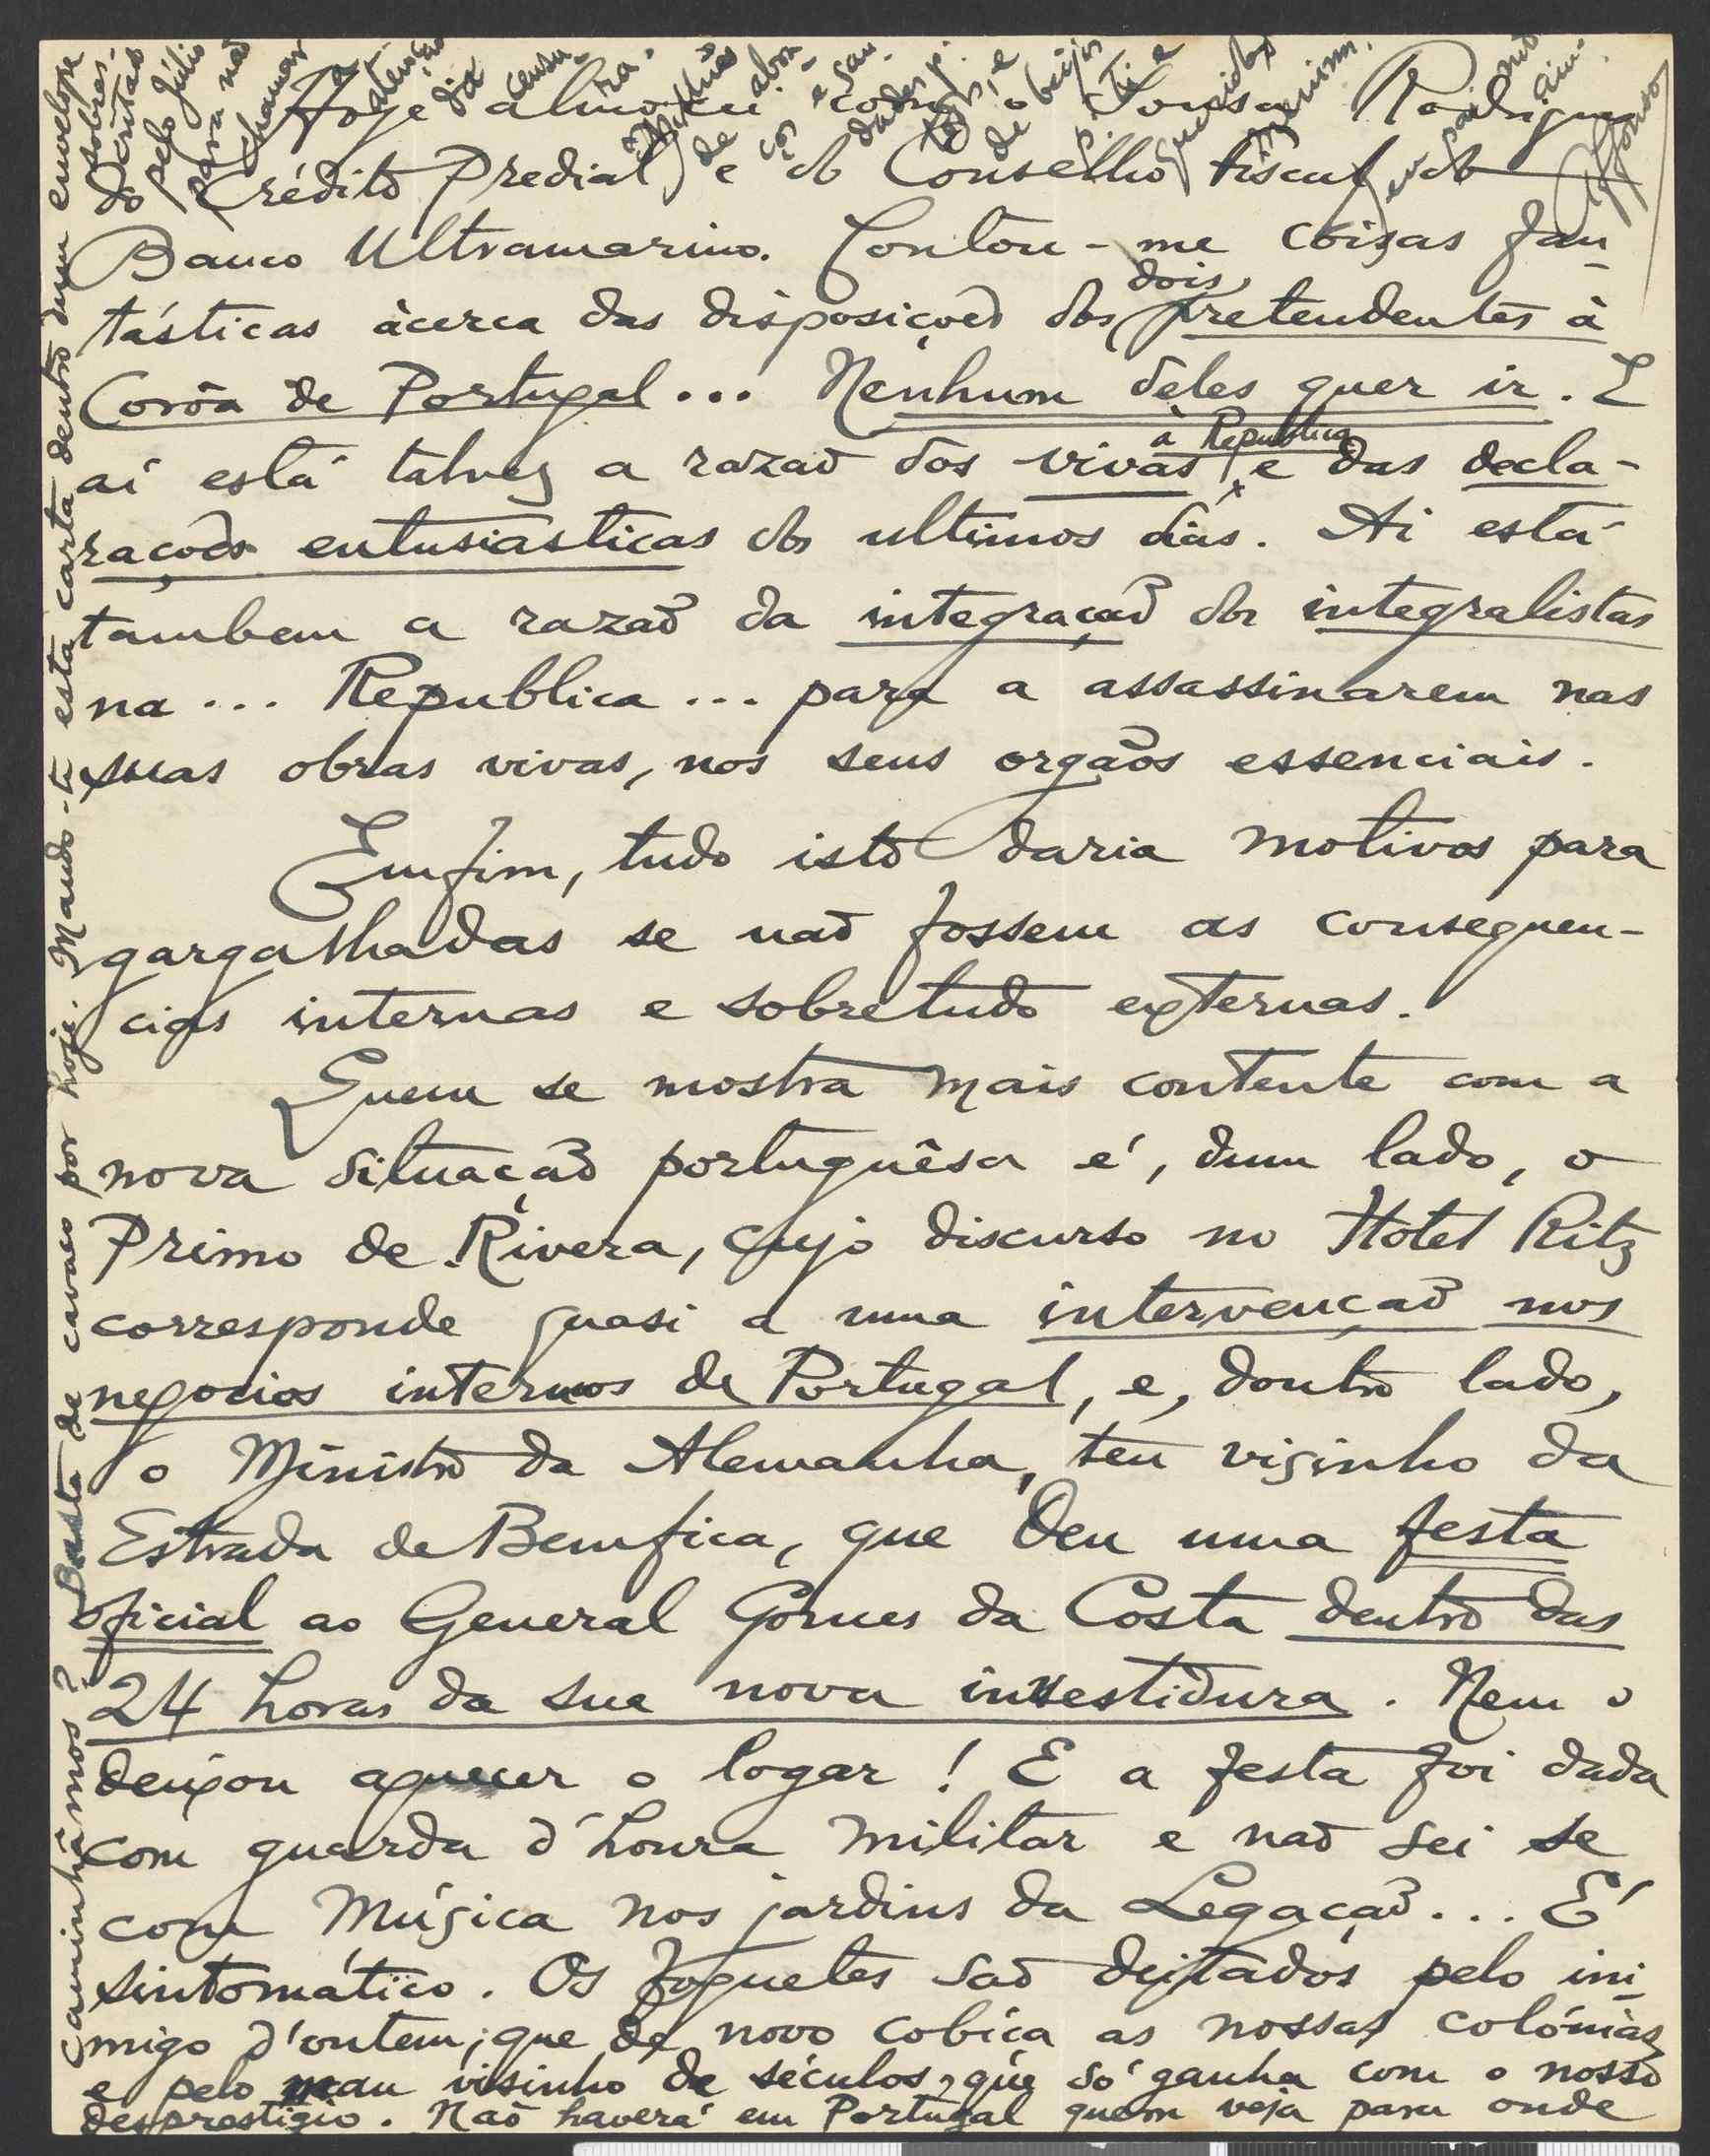 Hoje almocei com o Sousa Rodrigues
(Crédito Predial) e do Conselho fiscal do
Banco Ultramarino. Contou-me coisas fan-
tásticas àcerca das disposições dos dois pretendentes à
Corôa de Portugal... Nenhum deles quer ir. E
aí está talvez a razaõ dos vivas à Republica e das decla-
rações entusiasticas dos ultimos dias. Ai está
tambem a razaõ da integraçaõ dos integralistas
na... Republica... para a assassinarem nas
suas obras vivas, nos seus orgaõs essenciais.
Emfim, tudo isto daria motivos para
gargalhadas se naõ fossem as consequen-
cias internas e sobretudo externas.
Quem se mostra mais contente com a
nova situaçaõ portuguêsa é, dum lado, o
Primo de Rivera, cujo discurso no Hotel Ritz
corresponde quasi a uma intervençaõ nos
negocios internos de Portugal, e, doutro lado,
o Ministro da Alemanha, teu visinho da
Estrada de Bemfica, que deu uma festa
oficial ao General Gomes da Costa dentro das
24 horas da sua nova investidura. Nem o
deixou aquecer o logar! E a festa foi dada
com guarda d'honra militar e naõ sei se
com Música nos jardins da Legaçaõ... É
sintomático. Os foguetes saõ deitados pelo ini-
migo d'ontem, que de novo cobiça as nossas colónias
e pelo mau visinho de séculos, que só ganha com o nosso
desprestigio. Naõ haverá em Portugal quem veja para onde
caminhâmos? Basta de cavaco por hoje. Mando-te esta carta dentro dum envelope
dos sobres-
critados
pelo Júlio
para naõ
chamar
a
atençaõ
da
censu-
ra.
de
abra-
ços e sau-
dades p.
todos, e
de beijos
p. ti e
Affonso